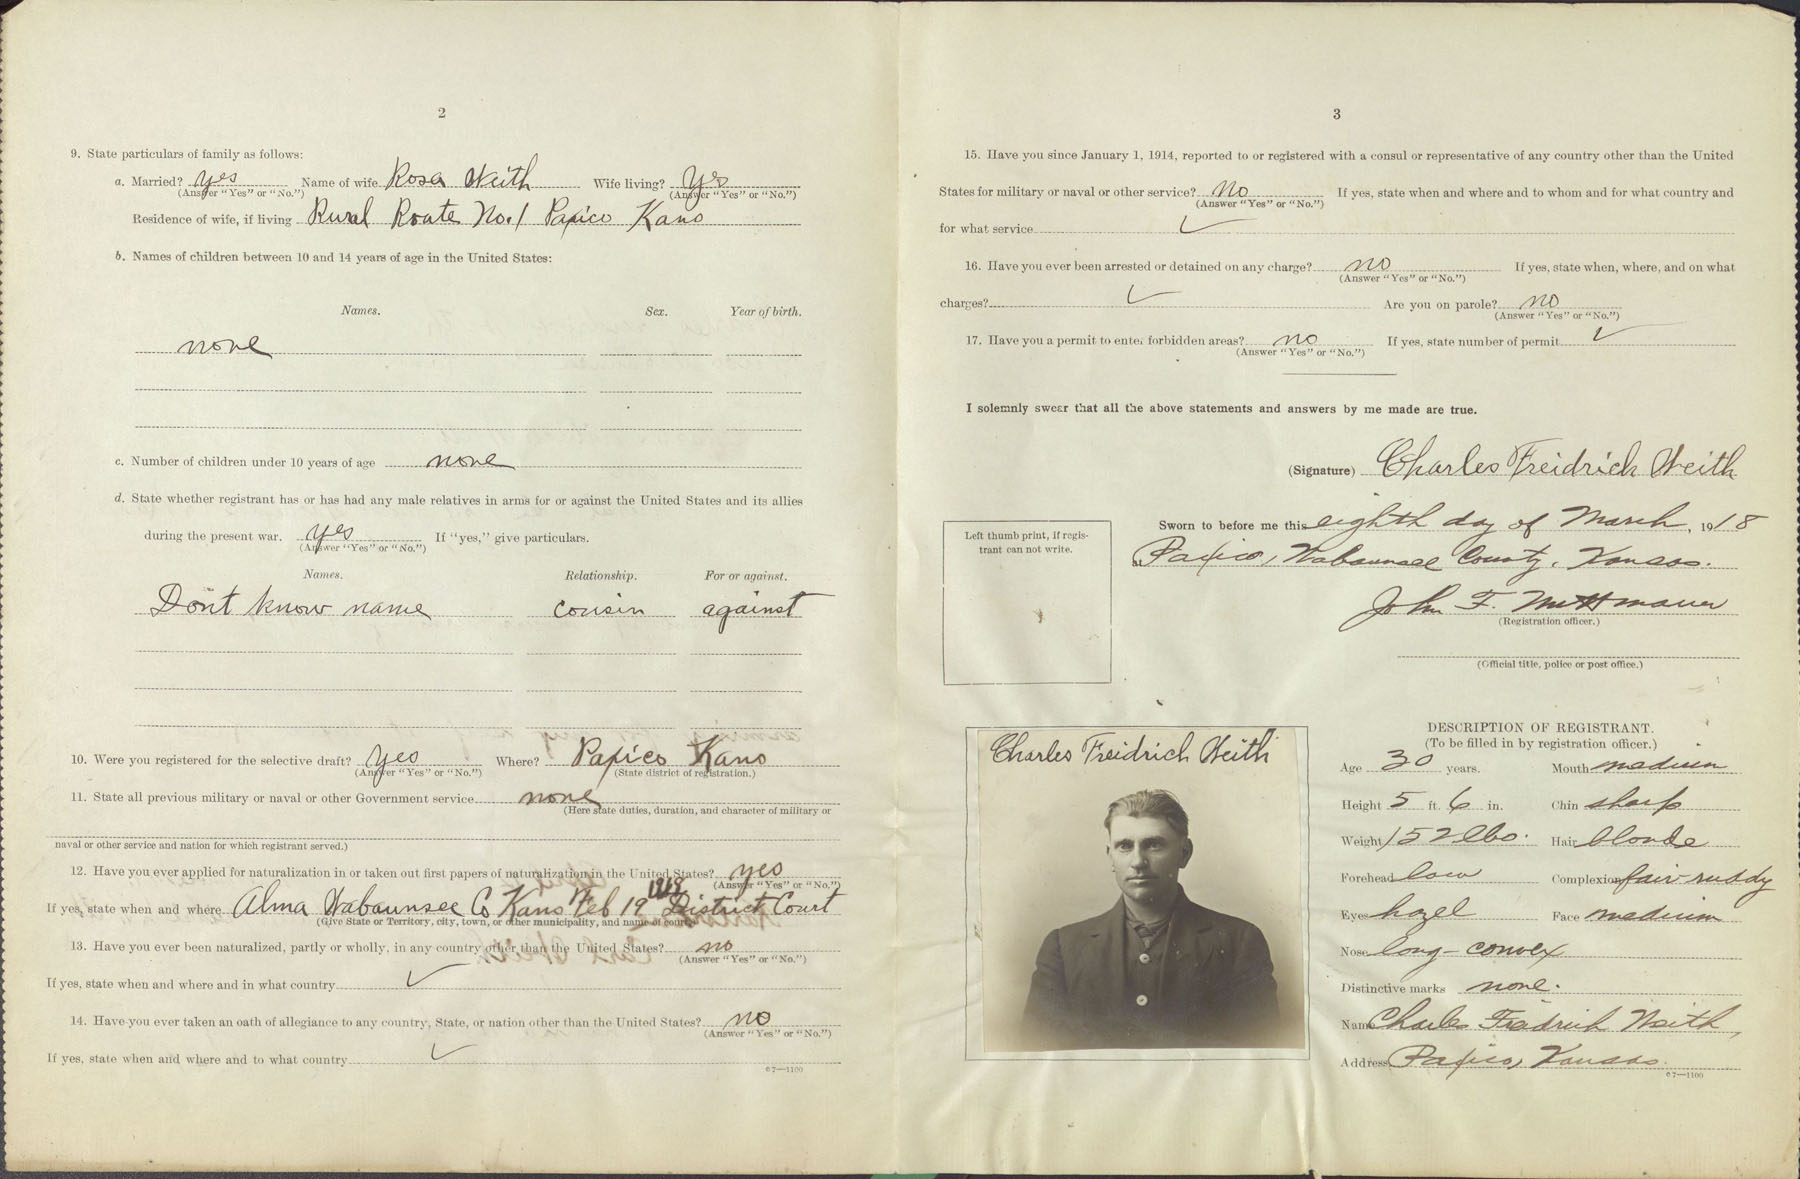 2
9. State particulars of family as follows:
a. Married? yes Name of wife Rosa Weith Wife living? yes
(Answer "Yes" or "No.") (Answer "Yes" or "No.")
Residence of wife, if living Rural Route No. 1 Paxico Kans
b. Names of children between 10 and 14 years of age in the United States:
Names. Sex. Year of birth.
none
c. Number of children under 10 years of age none
d. State whether registrant has or has had any male relatives in arms for or against the United States and its allies
during the present war. yes If "yes," give particulars.
(Answer "Yes" or "No.")
Names. Relationship. For or against.
Dont know name cousin against
10. Were you registered for the selective draft? yes Where? Paxico Kans
(Answer "Yes" or "No.") (State district of registration.)
11. State all previous military or naval or other Government service none
(Here state duties, duration, and character of military or
naval or other service and nation for which registrant served.)
12. Have you ever applied for naturalization in or taken out first papers of naturalization in the United States? yes
(Answer "Yes" or "No.")
If yes, state when and where Alma Wabaunsee Co Kans Feb 19 District Court
(Give State or Territory, city, town, or other municipality, and name of court.)
13. Have you ever been naturalized, partly or wholly, in any country other than the United States? no
(Answer "Yes" or "No.")
If yes, state when and where and in what country ✓
14. Have you ever taken an oath of allegiance to any country, State, or nation other than the United States? no
(Answer "Yes" or "No.")
If yes, state when and where and to what country ✓
67—1100
3
15. Have you since January 1, 1914, reported to or registered with a consul or representative of any country other than the United
States for military or naval or other service? no If yes, state when and where and to whom and for what country and
(Answer "Yes" or "No.")
for what service ✓
16. Have you ever been arrested or detained on any charge? no If yes, state when, where, and on what
(Answer "Yes" or "No.")
charges? ✓ Are you on parole? no
(Answer "Yes" or "No.")
17. Have you a permit to enter forbidden areas? no If yes, state number of permit ✓
(Answer "Yes" or "No.")
I solemnly swear that all the above statements and answers by me made are true.
(Signature) Charles Freidrich Weith
Sworn to before me this eighth day of March, 1918
at Paxico, Wabaunsee County, Kansas.
John F. Mittmauer
(Registration officer.)
(Official title, police or post office.)
Left thumb print, if regis-
trant can not write.
Charles Freidrich Weith
DESCRIPTION OF REGISTRANT.
(To be filled in by registration officer.)
Age 30 years. Mouth medium
Height 5 ft. 6 in. Chin sharp
Weight 152 lbs. Hair blonde
Forehead low Complexion fair-ruddy
Eyes hazel Face medium
Nose long-convex
Distinctive marks none.
Name Charles Friedrich Weith,
Address Paxico, Kansas.
67—1100